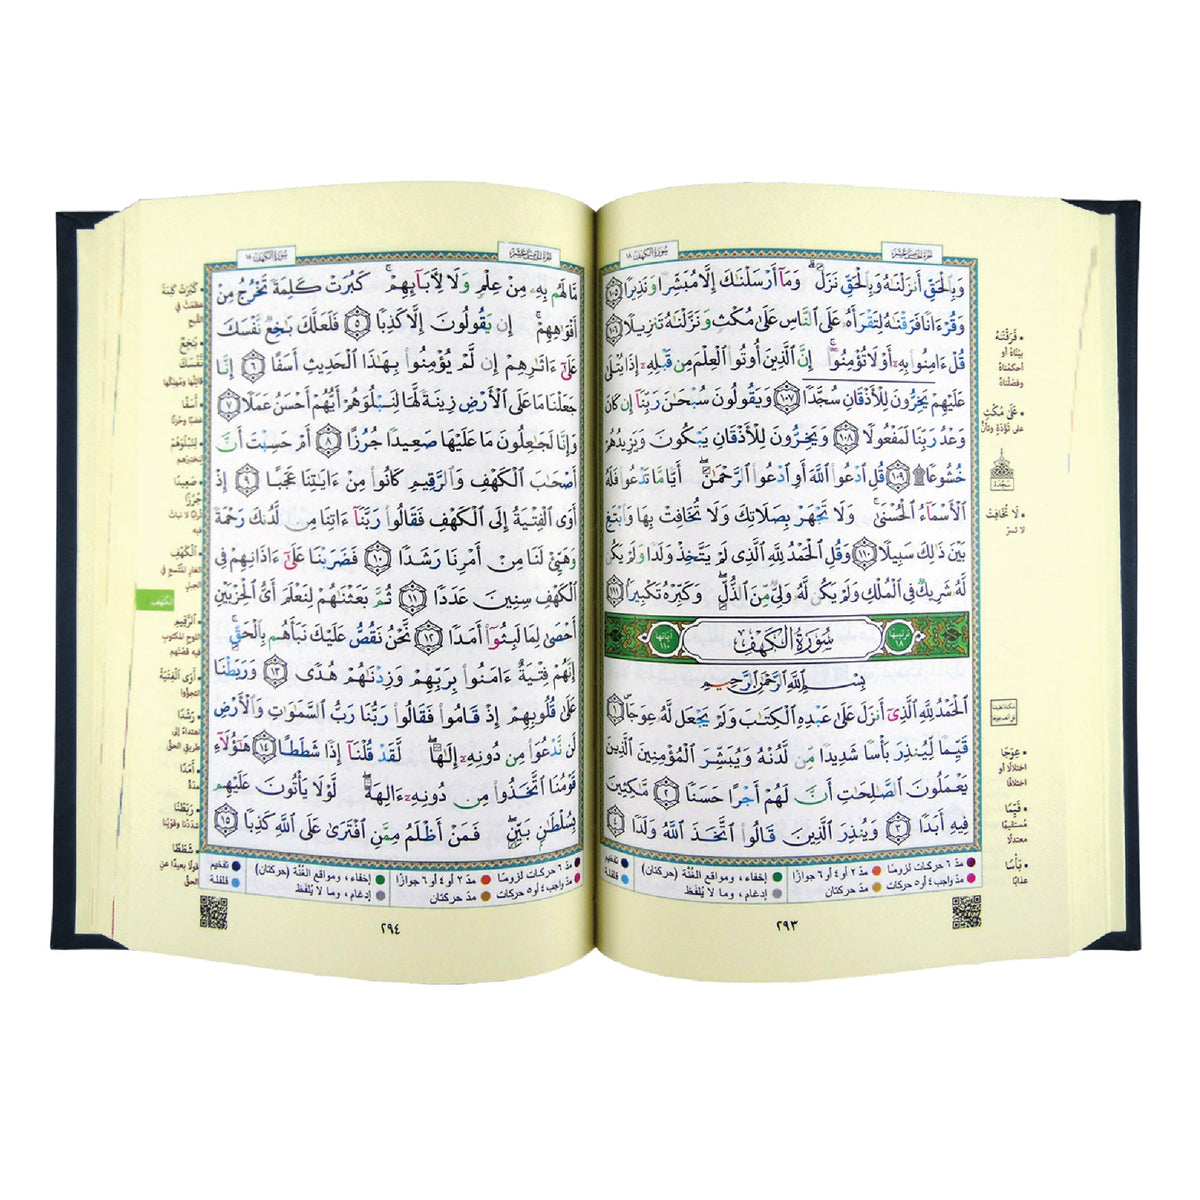 سُورَةُ الكَهْفِ ١٨
الجُزْءُ الخَامِسَ عَشَرَ
وَبِٱلْحَقِّ أَنزَلْنَٰهُ وَبِٱلْحَقِّ نَزَلَ ۗ وَمَآ أَرْسَلْنَٰكَ إِلَّا مُبَشِّرًا وَنَذِيرًا ١٠٥
وَقُرْءَانًا فَرَقْنَٰهُ لِتَقْرَأَهُۥ عَلَى ٱلنَّاسِ عَلَىٰ مُكْثٍ وَنَزَّلْنَٰهُ تَنزِيلًا ١٠٦
قُلْ ءَامِنُوا۟ بِهِۦٓ أَوْ لَا تُؤْمِنُوٓا۟ ۚ إِنَّ ٱلَّذِينَ أُوتُوا۟ ٱلْعِلْمَ مِن قَبْلِهِۦٓ إِذَا يُتْلَىٰ
عَلَيْهِمْ يَخِرُّونَ لِلْأَذْقَانِ سُجَّدًا ١٠٧ وَيَقُولُونَ سُبْحَٰنَ رَبِّنَآ إِن كَانَ
وَعْدُ رَبِّنَا لَمَفْعُولًا ١٠٨ وَيَخِرُّونَ لِلْأَذْقَانِ يَبْكُونَ وَيَزِيدُهُمْ
خُشُوعًا ۩ ١٠٩ قُلِ ٱدْعُوا۟ ٱللَّهَ أَوِ ٱدْعُوا۟ ٱلرَّحْمَٰنَ ۖ أَيًّا مَّا تَدْعُوا۟ فَلَهُ
ٱلْأَسْمَآءُ ٱلْحُسْنَىٰ ۚ وَلَا تَجْهَرْ بِصَلَاتِكَ وَلَا تُخَافِتْ بِهَا وَٱبْتَغِ
بَيْنَ ذَٰلِكَ سَبِيلًا ١١٠ وَقُلِ ٱلْحَمْدُ لِلَّهِ ٱلَّذِى لَمْ يَتَّخِذْ وَلَدًا وَلَمْ يَكُن
لَّهُۥ شَرِيكٌ فِى ٱلْمُلْكِ وَلَمْ يَكُن لَّهُۥ وَلِىٌّ مِّنَ ٱلذُّلِّ ۖ وَكَبِّرْهُ تَكْبِيرًا ١١١
ترتيبها ١٨ سُورَةُ الكَهْفِ آياتها ١١٠
بِسْمِ ٱللَّهِ ٱلرَّحْمَٰنِ ٱلرَّحِيمِ
ٱلْحَمْدُ لِلَّهِ ٱلَّذِىٓ أَنزَلَ عَلَىٰ عَبْدِهِ ٱلْكِتَٰبَ وَلَمْ يَجْعَل لَّهُۥ عِوَجَا ۜ ١
قَيِّمًا لِّيُنذِرَ بَأْسًا شَدِيدًا مِّن لَّدُنْهُ وَيُبَشِّرَ ٱلْمُؤْمِنِينَ ٱلَّذِينَ
يَعْمَلُونَ ٱلصَّٰلِحَٰتِ أَنَّ لَهُمْ أَجْرًا حَسَنًا ٢ مَّٰكِثِينَ
فِيهِ أَبَدًا ٣ وَيُنذِرَ ٱلَّذِينَ قَالُوا۟ ٱتَّخَذَ ٱللَّهُ وَلَدًا ٤
مدّ ٦ حركات لزومًا
مدّ ٢ أو ٤ أو ٦ جوازًا
إخفاء، ومواقع الغُنّة (حركتان)
تفخيم
مدّ واجب ٤ أو ٥ حركات
مدّ حركتان
إدغام، وما لا يُلفظ
قلقلة
٢٩٣
فَرَقْنَٰهُ
بيّنّاهُ أو
أحكمناهُ
وفصّلناهُ
عَلَىٰ مُكْثٍ
على تُؤَدَةٍ وتأنٍّ
سَجْدَة
لَا تُخَافِتْ
لا تسرّ
عِوَجَا
اختلالًا أو
اختلافًا
قَيِّمًا
مستقيمًا
معتدلًا
بَأْسًا
عذابًا
سُورَةُ الكَهْفِ ١٨
الجُزْءُ الخَامِسَ عَشَرَ
مَّا لَهُم بِهِۦ مِنْ عِلْمٍ وَلَا لِـَٔابَآئِهِمْ ۚ كَبُرَتْ كَلِمَةً تَخْرُجُ مِنْ
أَفْوَٰهِهِمْ ۚ إِن يَقُولُونَ إِلَّا كَذِبًا ٥ فَلَعَلَّكَ بَٰخِعٌ نَّفْسَكَ
عَلَىٰٓ ءَاثَٰرِهِمْ إِن لَّمْ يُؤْمِنُوا۟ بِهَٰذَا ٱلْحَدِيثِ أَسَفًا ٦ إِنَّا
جَعَلْنَا مَا عَلَى ٱلْأَرْضِ زِينَةً لَّهَا لِنَبْلُوَهُمْ أَيُّهُمْ أَحْسَنُ عَمَلًا ٧
وَإِنَّا لَجَٰعِلُونَ مَا عَلَيْهَا صَعِيدًا جُرُزًا ٨ أَمْ حَسِبْتَ أَنَّ
أَصْحَٰبَ ٱلْكَهْفِ وَٱلرَّقِيمِ كَانُوا۟ مِنْ ءَايَٰتِنَا عَجَبًا ٩ إِذْ
أَوَى ٱلْفِتْيَةُ إِلَى ٱلْكَهْفِ فَقَالُوا۟ رَبَّنَآ ءَاتِنَا مِن لَّدُنكَ رَحْمَةً
وَهَيِّئْ لَنَا مِنْ أَمْرِنَا رَشَدًا ١٠ فَضَرَبْنَا عَلَىٰٓ ءَاذَانِهِمْ فِى
ٱلْكَهْفِ سِنِينَ عَدَدًا ١١ ثُمَّ بَعَثْنَٰهُمْ لِنَعْلَمَ أَىُّ ٱلْحِزْبَيْنِ
أَحْصَىٰ لِمَا لَبِثُوٓا۟ أَمَدًا ١٢ نَّحْنُ نَقُصُّ عَلَيْكَ نَبَأَهُم بِٱلْحَقِّ ۚ
إِنَّهُمْ فِتْيَةٌ ءَامَنُوا۟ بِرَبِّهِمْ وَزِدْنَٰهُمْ هُدًى ١٣ وَرَبَطْنَا
عَلَىٰ قُلُوبِهِمْ إِذْ قَامُوا۟ فَقَالُوا۟ رَبُّنَا رَبُّ ٱلسَّمَٰوَٰتِ وَٱلْأَرْضِ
لَن نَّدْعُوَا۟ مِن دُونِهِۦٓ إِلَٰهًا ۖ لَّقَدْ قُلْنَآ إِذًا شَطَطًا ١٤ هَٰٓؤُلَآءِ
قَوْمُنَا ٱتَّخَذُوا۟ مِن دُونِهِۦٓ ءَالِهَةً ۖ لَّوْلَا يَأْتُونَ عَلَيْهِم
بِسُلْطَٰنٍۭ بَيِّنٍ ۖ فَمَنْ أَظْلَمُ مِمَّنِ ٱفْتَرَىٰ عَلَى ٱللَّهِ كَذِبًا ١٥
مدّ ٦ حركات لزومًا
مدّ ٢ أو ٤ أو ٦ جوازًا
إخفاء، ومواقع الغُنّة (حركتان)
تفخيم
مدّ واجب ٤ أو ٥ حركات
مدّ حركتان
إدغام، وما لا يُلفظ
قلقلة
٢٩٤
كَبُرَتْ كَلِمَةً
عظمت في
القبح
بَٰخِعٌ
نَّفْسَكَ
قاتلها ومهلكها
أَسَفًا
غضبًا وحزنًا
لِنَبْلُوَهُمْ
لنختبرهم
صَعِيدًا
جُرُزًا
ترابًا لا نبات
فيه
ٱلْكَهْفِ
الغار المتّسع في
الجبل
الكهف
ٱلرَّقِيمِ
اللوح المكتوب
فيه قصّتهم
أَوَى ٱلْفِتْيَةُ
التجؤوا
رَشَدًا
اهتداءً إلى
طريق الحقّ
أَمَدًا
مدّة
رَبَطْنَا
شددنا وقوّينا
شَطَطًا
قولًا بعيدًا عن
الحقّ